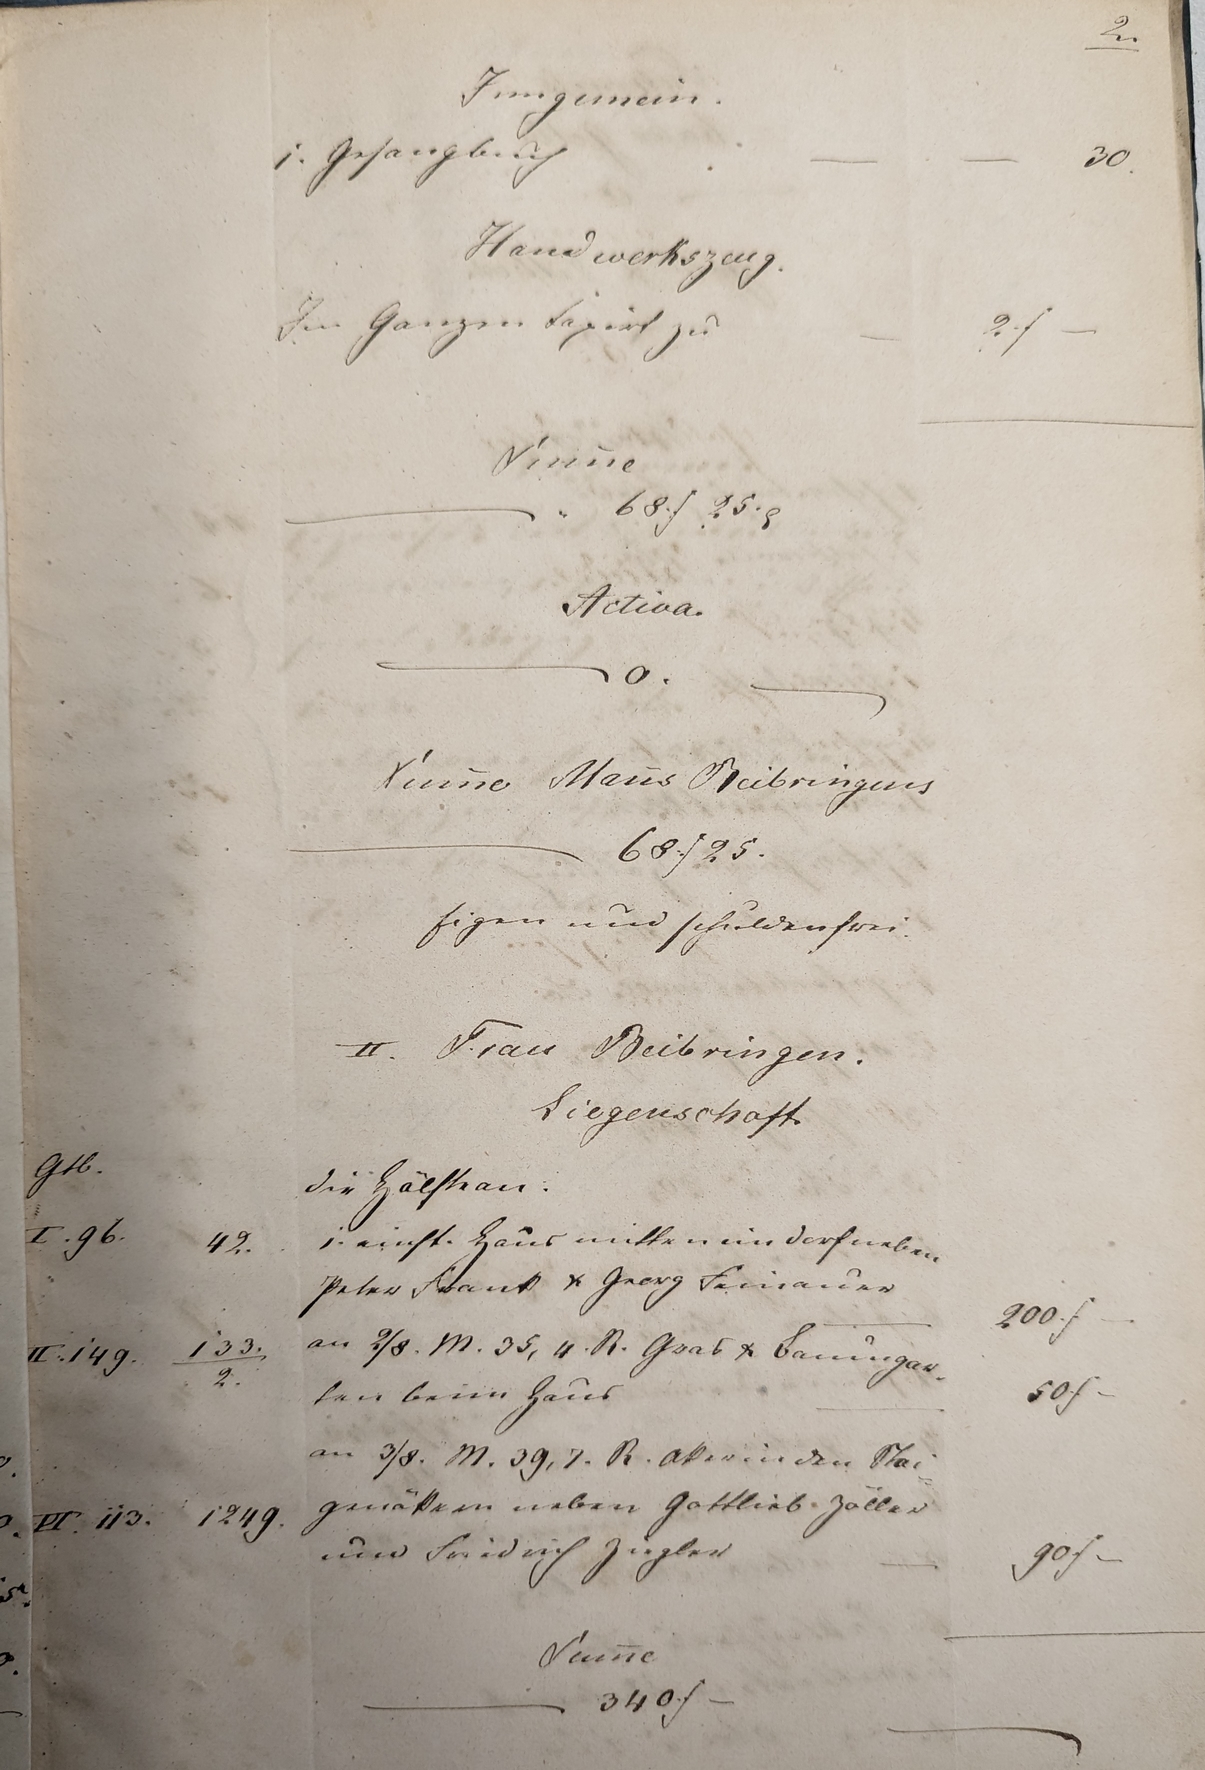 2.
Inngemein.
1. Gesangbuch — — 30.
Handwerkszeug.
Im Ganzen taxirt zu — 2 f —
Sum̄e
68 f 25.
Activa.
0.
Sum̄e Man̄s Beibringens
68 f 25.
eigen und schuldenfrei.
II. Frau Beibringen.
Liegenschaft.
Gtb. die Hälfte an:
I. 96. 42. 1. einst. Haus mitten im Dorf neben
Peter Frank & Georg
200 f —
II. 149. 133./2. an 2/8. M. 35, 4. R. Gras & Baumgar-
ten beim Haus — 50 f —
an 3/8. M. 39, 7. R. Aker in den Stai-
VI. 113. 1249. genäkern neben Gottlieb Zoller
und Friedrich Ziegler — 90 f —
Sum̄e
340 f —